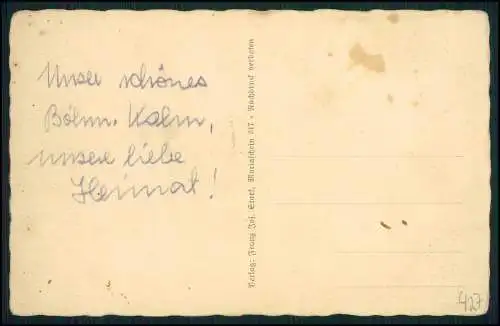 Unser schönes
Böhm. Kahn,
unsere liebe
Heimat!
Verlag: Franz Jos. Ebert, Mariaschein 817 • Nachdruck verboten
427